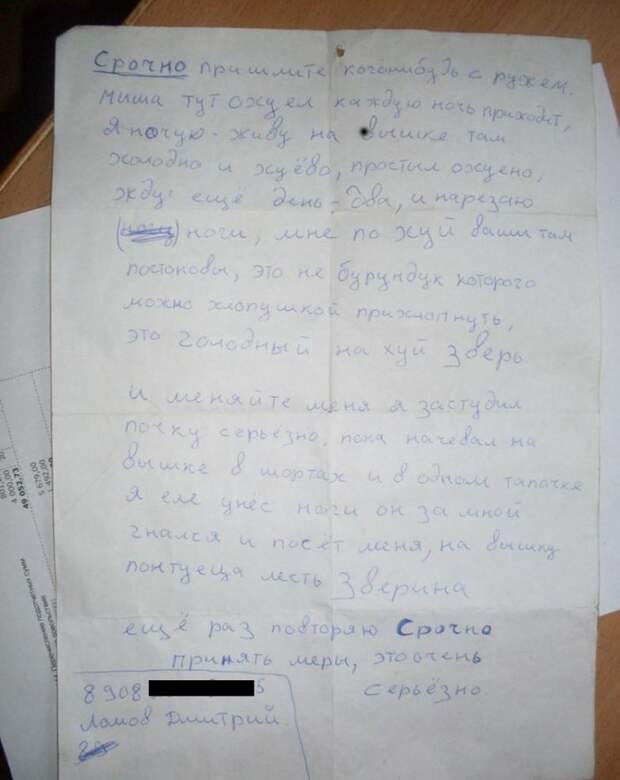 Срочно пришлите когонибудь с ружём.
Миша тут охуел каждую ночь приходит,
Я ночую-живу на вышке там
холодно и хуёво, простыл охуено,
жду ещё день-два, и нарезаю
ноги, мне по хуй ваши там
постоновы, это не бурундук которого
можно хлопушкой прихлопнуть,
это голодный на хуй Зверь
И меняйте меня я застудил
почку серьёзно, пока начевал на
вышке в шортах и в одном тапочке
я еле унёс ноги он за мной
гнался и посёт меня, на вышку
понтуеца лесть Зверина
ещё раз повторяю Срочно
принять меры, это очень
серьёзно
8 908
Ламов Дмитрий
49 052,73
4 000,00
5 679,00
1 492,00